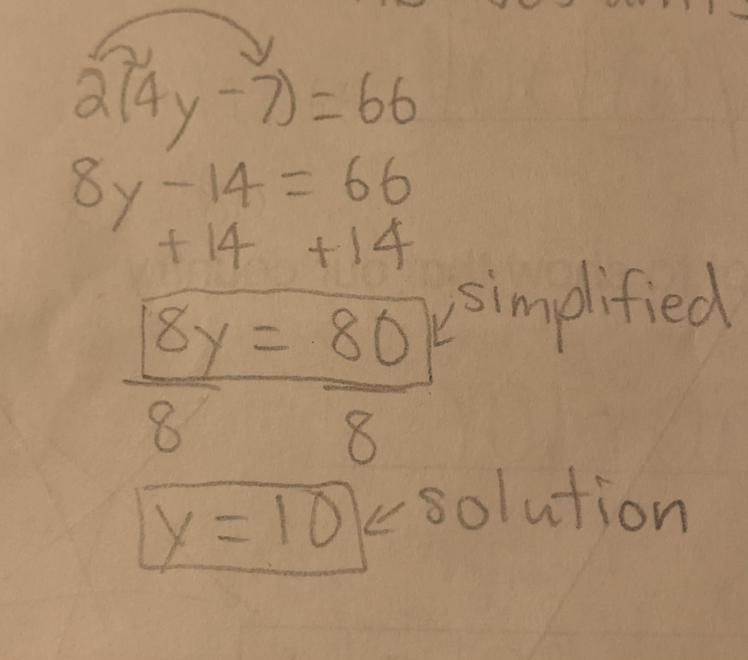 2(4y - 7) = 66
8y - 14 = 66
+14 +14
8y = 80 simplified
8 8
y = 10 ← solution